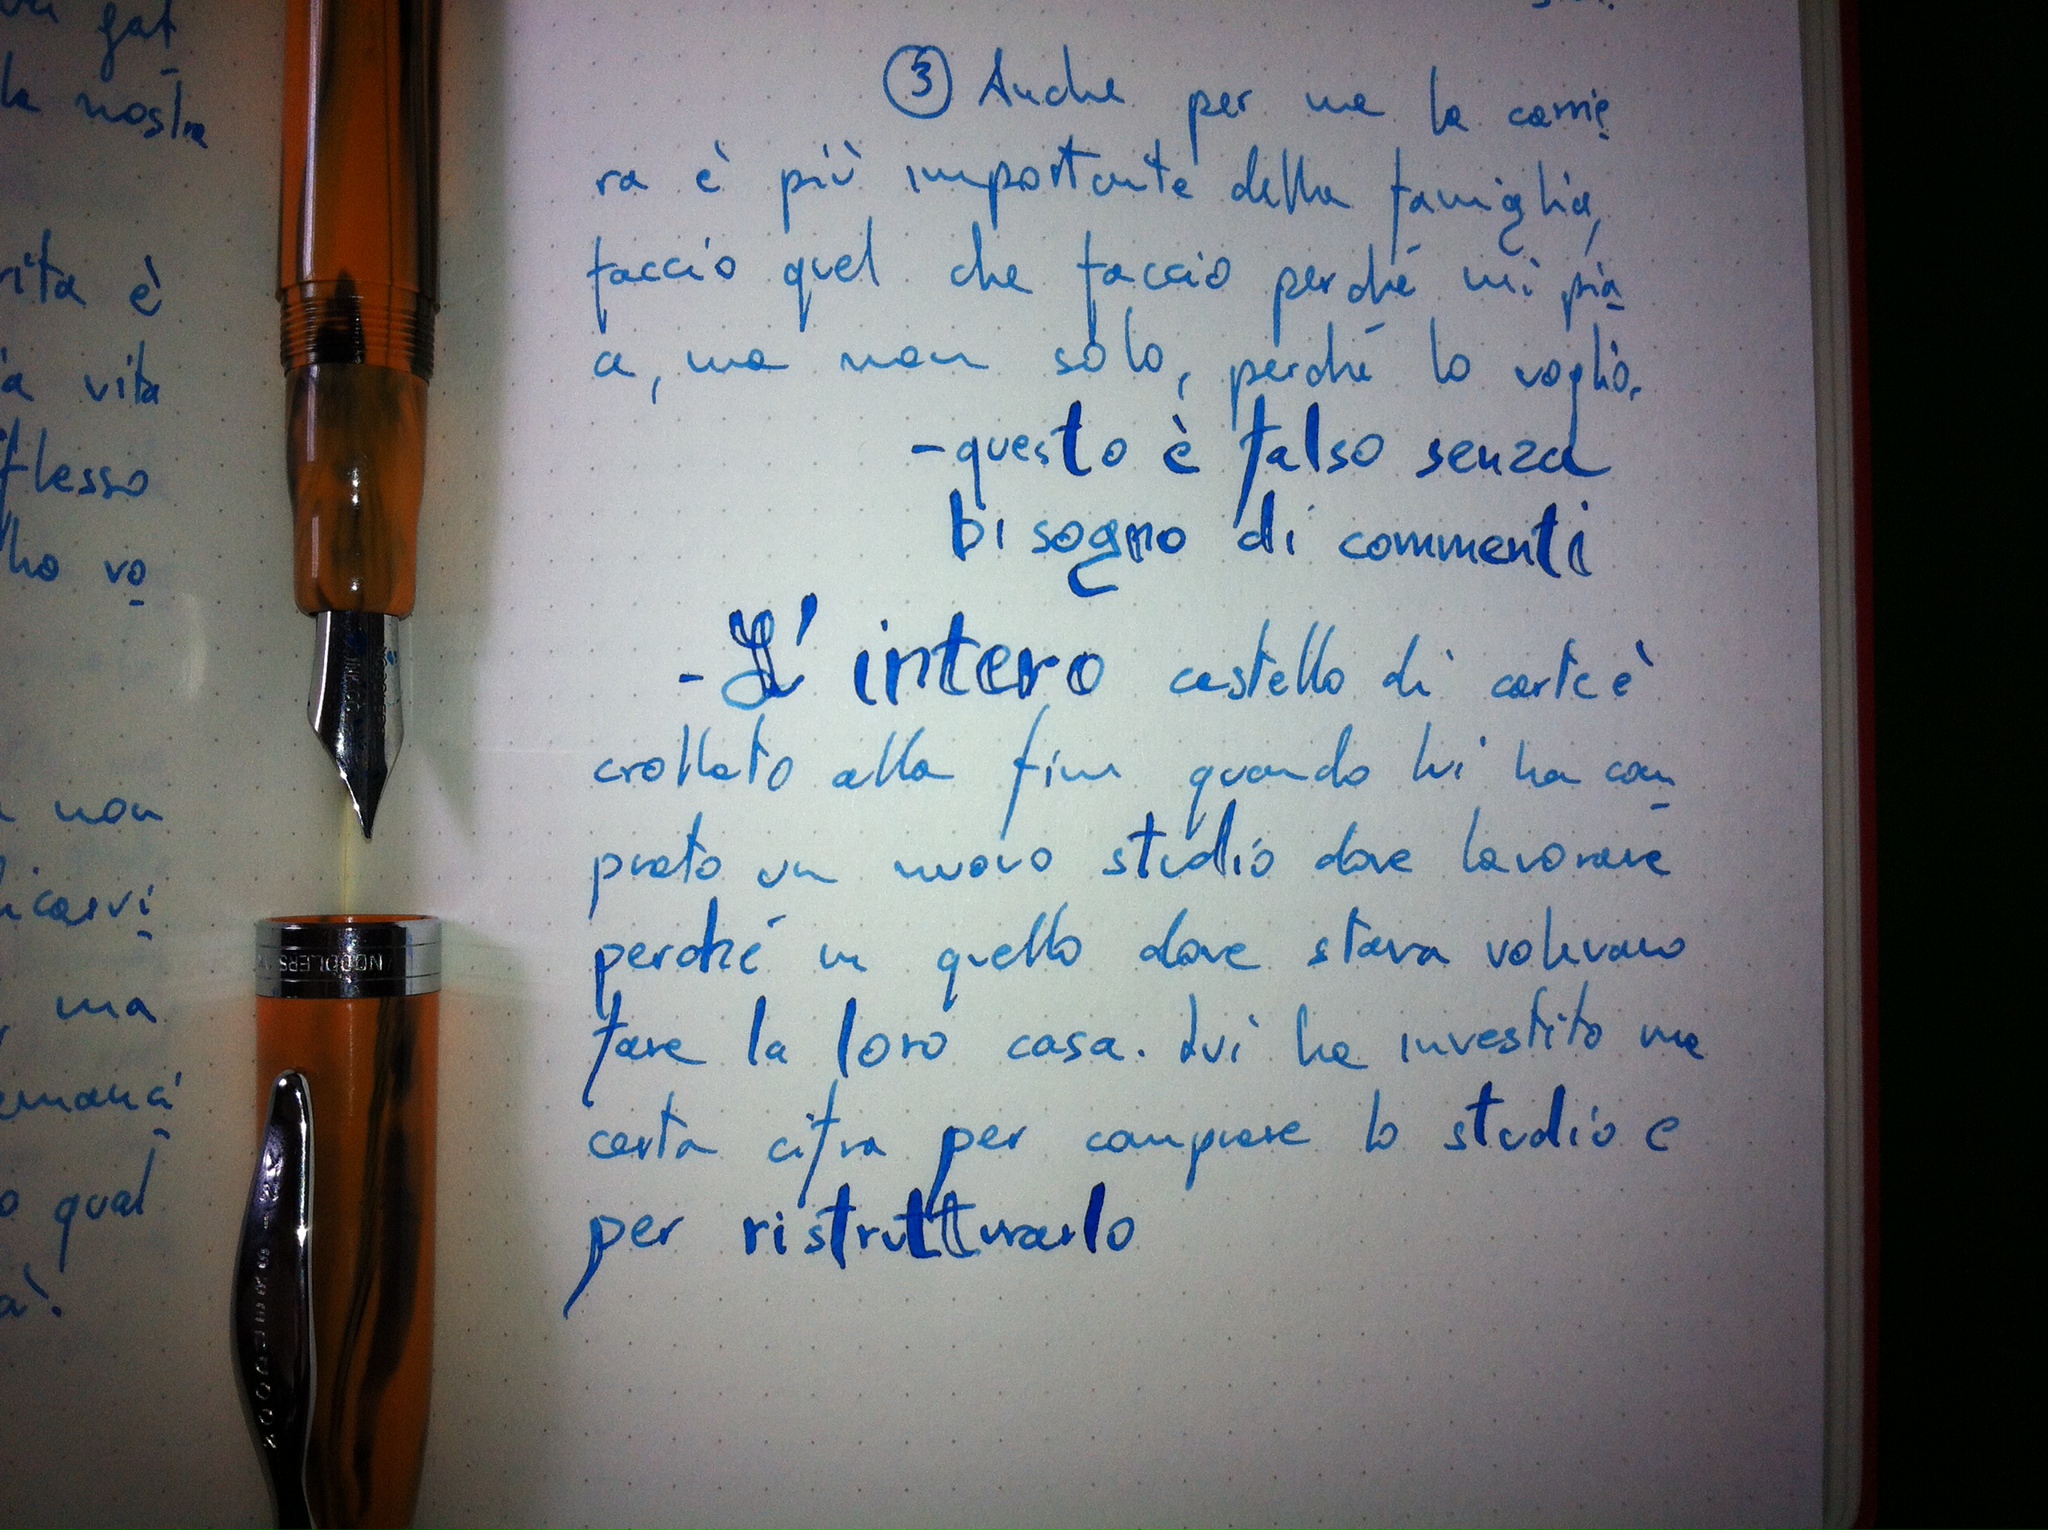 gat
la nostra
vita è
vita
flesso
ho vo
non
ma
qual
NOODLERS
③ Anche per me la carrie
ra è più importante della famiglia,
faccio quel che faccio perché mi pia
a, ma non solo, perché lo voglio.
-questo è falso senza
bisogno di commenti
-L'intero castello di carte è
crollato alla fine quando lui ha com
prato un nuovo studio dove lavorare
perché in quello dove stava volevano
fare la loro casa. Lui ha investito una
certa cifra per comprare lo studio e
per ristrutturarlo